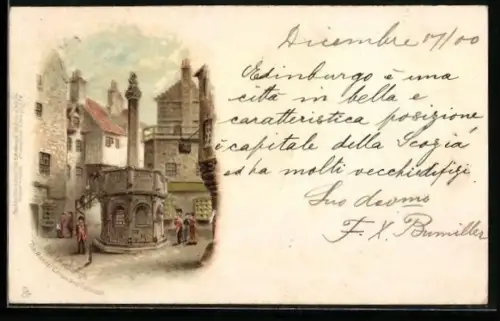 Dicembre 17/00
Edinburgo è una
città in bella e
caratteristica posizione
è capitale della Scozia
ed ha molti vecchi edifizi
Suo devmo
F. X. Bumiller